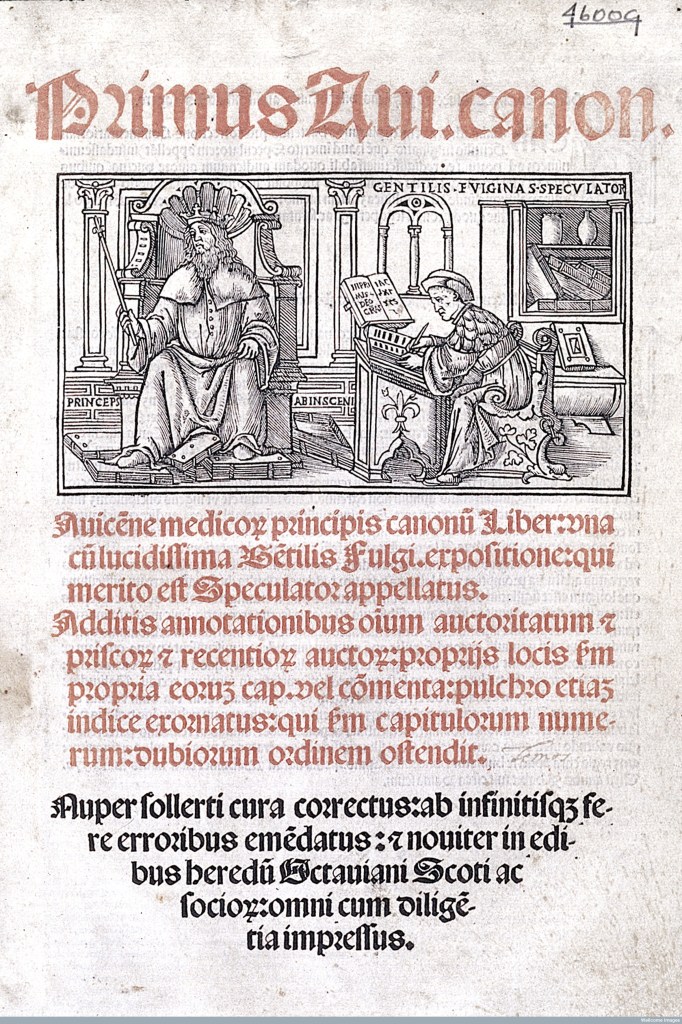 46009
Primus Aui. canon.
GENTILIS·FVLGINAS·SPECVLATOR
PRINCEPS
ABINSCENI
Auicēne medicoꝝ principis canonū Liber: vna
cū lucidissima Gētilis Fulgi. expositione: qui
merito est Speculator appellatus.
Additis annotationibus oīum auctoritatum ⁊
priscoꝝ ⁊ recentioꝝ auctoꝝ: proprijs locis ẜm
propria eoruꝫ cap. vel cōmenta: pulchro etiaꝫ
indice exornatus: qui ẜm capitulorum nume-
rum: dubiorum ordinem ostendit.
Nuper sollerti cura correctus: ab infinitisqꝫ fe-
re erroribus emēdatus: ⁊ nouiter in edi-
bus heredū Octauiani Scoti ac
socioꝝ: omni cum diligē-
tia impressus.